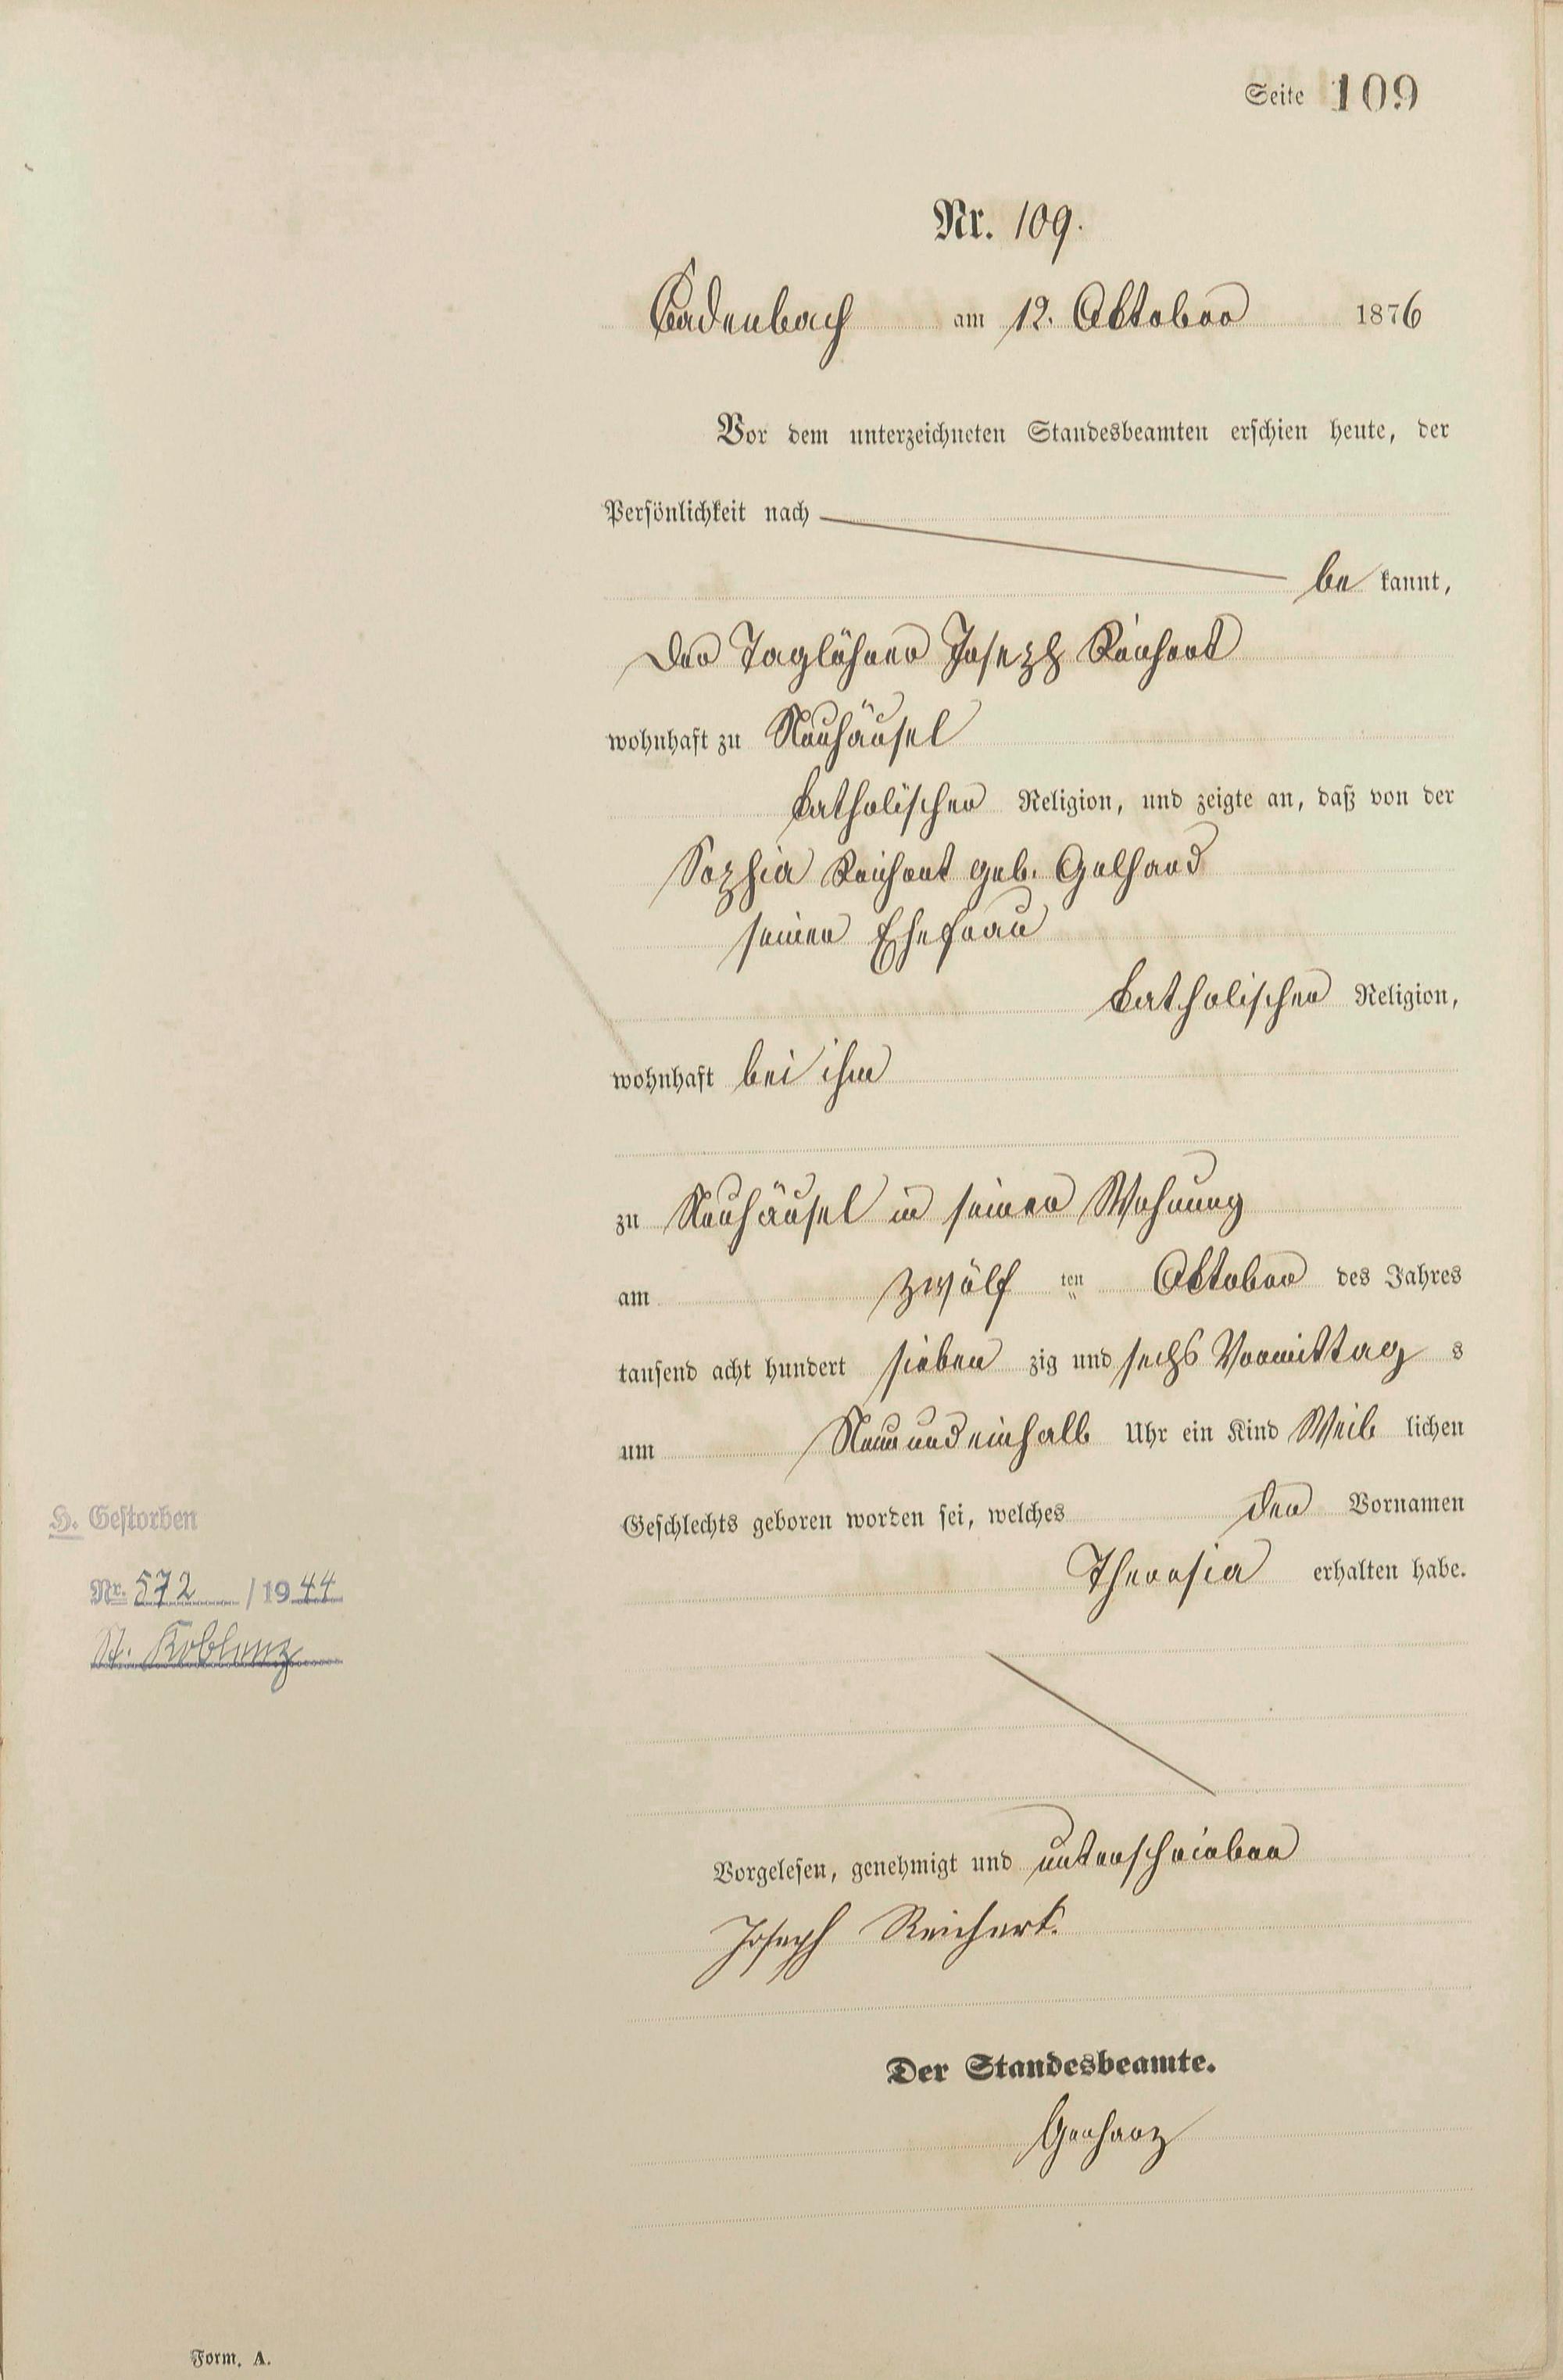 Seite 109
Nr. 109.
Cadenbach am 12. Oktober 1876
Vor dem unterzeichneten Standesbeamten erschien heute, der
Persönlichkeit nach
be kannt,
der Taglöhner Joseph Reichert
wohnhaft zu Neuhäusel
katholischer Religion, und zeigte an, daß von der
Sophia Reichert geb. Gelhard
seiner Ehefrau
katholischer Religion,
wohnhaft bei ihm
zu Neuhäusel in seiner Wohnung
am zwölf ten Oktober des Jahres
tausend acht hundert sieben zig und sechs Vormittag s
um Neun und einhalb Uhr ein Kind Weib lichen
Geschlechts geboren worden sei, welches den Vornamen
Theresia erhalten habe.
H. Gestorben
Nr. 572 / 1944
St. Koblenz
Vorgelesen, genehmigt und unterschrieben
Joseph Reichert.
Der Standesbeamte.
Gerharz
Form. A.